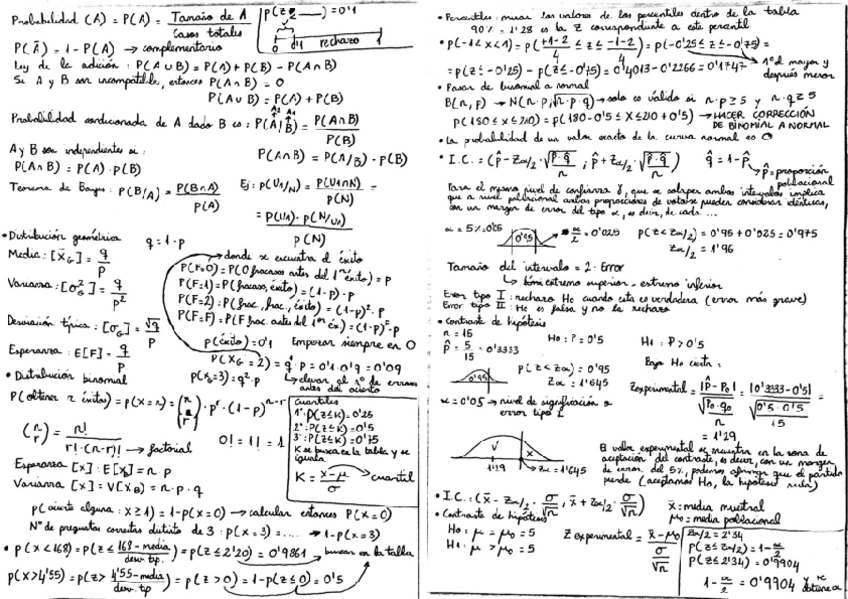 Probabilidad (A) = P(A) = Tamaño de A / Casos totales
P(Z≤ ___) = 0'1
0 0'1 rechazo 1
P(Ā) = 1 - P(A) → complementario
Ley de la adición: P(A∪B) = P(A) + P(B) - P(A∩B)
Si A y B son incompatibles, entonces P(A∩B) = 0
P(A∪B) = P(A) + P(B)
Probabilidad condicionada de A dado B es: P(A/B) = P(A∩B) / P(B)
A y B son independientes si:
P(A∩B) = P(A)·P(B)
P(A∩B) = P(A/B)·P(B)
Teorema de Bayes: P(B/A) = P(B∩A) / P(A)
Ej: P(U1/N) = P(U1∩N) / P(N) =
= P(U1)·P(N/U1) / P(N)
• Distribución geométrica q = 1-p
Media: [X̄G] = q/p
Varianza: [σ²G] = q/p²
Desviación típica: [σG] = √q/p
Esperanza: E[F] = q/p
donde se encuentra el éxito
P(F=0) = P(0 fracasos antes del 1er éxito) = p
P(F=1) = P(fracaso, éxito) = (1-p)·p
P(F=2) = P(frac, frac, éxito) = (1-p)²·p
P(F=F) = P(F frac. antes del 1er éx) = (1-p)^F·p
p(éxito) = 0'1 Empezar siempre en 0
P(XG=2) = q²·p = 0'1·0'9 = 0'09
P(XG=3) = q²·p → elevar al nº de errores antes del acierto
• Distribución binomial
P(obtener r éxitos) = p(X=r) = (n r)·p^r·(1-p)^n-r
(n r) = n! / r!·(n-r)! → factorial 0! = 1! = 1
Esperanza [x] = E[Xb] = n·p
Varianza [x] = V[XB] = n·p·q
cuantiles
1º: p(Z≤K) = 0'25
2º: P(Z≤K) = 0'5
3º: P(Z≤K) = 0'75
K se busca en la tabla y se iguala
K = x-μ / σ → cuantil
p(acierte alguna: X≥1) = 1-P(X=0) → calcular entonces P(X=0)
Nº de preguntas correctas distinto de 3: P(X=3) = ... → 1-P(X=3)
• P(X<168) = P(Z≤ 168-media / desv. tip) = P(Z≤2'20) = 0'9861 buscar en la tabla
p(X>4'55) = p(Z> 4'55-media / desv. tip) = P(Z>0) = 1-P(Z≤0) = 0'5
• Percentiles: mirar los valores de los percentiles dentro de la tabla
90% = 1'28 es la Z correspondiente a este percentil
• P(-1<X<1) = P(+1-2 / 4 ≤ Z ≤ -1-2 / 4) = P(-0'25≤Z≤-0'75) =
= P(Z≤-0'25) - P(Z≤-0'75) = 0'4013-0'2266 = 0'1747
1º el mayor y después menor
• Pasar de binomial a normal
B(n,p) → N(n·p, √n·p·q) → solo es válido si n·p≥5 y n·q≥5
P(180≤X≤210) = P(180-0'5≤X≤210+0'5) → HACER CORRECCIÓN DE BINOMIAL A NORMAL
• La probabilidad de un valor exacto de la curva normal es 0
• I.C.: (p̂-Zα/2·√p̂·q̂/n ; p̂+Zα/2·√p̂·q̂/n) q̂ = 1-p̂
p̂ = proporción poblacional
Para el mismo nivel de confianza γ, que se solapen ambos intervalos implica
que a nivel poblacional ambas proporciones de votantes pueden considerar idénticas,
con un margen de error del tipo α, es decir, de cada ...
α = 5% = 0'05 0'95 α/2 = 0'025 P(Z<Zα/2) = 0'95+0'025 = 0'975
Zα/2 = 1'96
Tamaño del intervalo = 2·Error
extremo superior - extremo inferior
Error tipo I: rechazo Ho cuando esta es verdadera (error más grave)
Error tipo II: Ho es falsa y no la rechazo
• Contraste de hipótesis
n = 15
p̂ = 5/15 = 0'3333
Ho: P = 0'5 H1: P > 0'5
0'95 P(Z<Zα) = 0'95
Zα = 1'645
Bajo Ho cierta:
Zexperimental = |p̂-Po| / √Po·qo/n = |0'3333-0'5| / √0'5·0'5/15 =
= 1'29
α = 0'05 → nivel de significación o error tipo I
1'29 Zα = 1'645
El valor experimental se encuentra en la zona de
aceptación del contraste, es decir, con un margen
de error del 5%, podemos afirmar que el partido
pierde (aceptamos Ho, la hipótesis nula)
• I.C.: (x̄-Zα/2·σ/√n, x̄+Zα/2·σ/√n) x̄: media muestral
μo = media poblacional
• Contraste de hipótesis
Ho: μ = μo = 5
H1: μ > μo = 5
Z experimental = x̄-μo / σ/√n
Zα/2 = 2'34
P(Z≤Zα/2) = 1-α/2
P(Z≤2'34) = 0'9904
1-α/2 = 0'9904 y se obtiene α